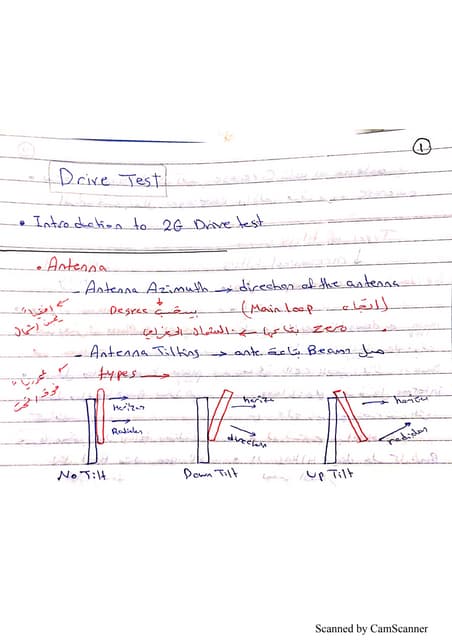 1
Drive Test
• Introduction to 2G Drive test
• Antenna
- Antenna Azimuth → direction of the antenna
Degree بيتحسب (Main loop اتجاه)
zero بتاعها ← الشمال
- Antenna Tilting → ميل Beam بتاعة ante.
types →
horizon
Radiation
horizon
direction
horizon
radiation
No Tilt
Down Tilt
Up Tilt
Scanned by CamScanner